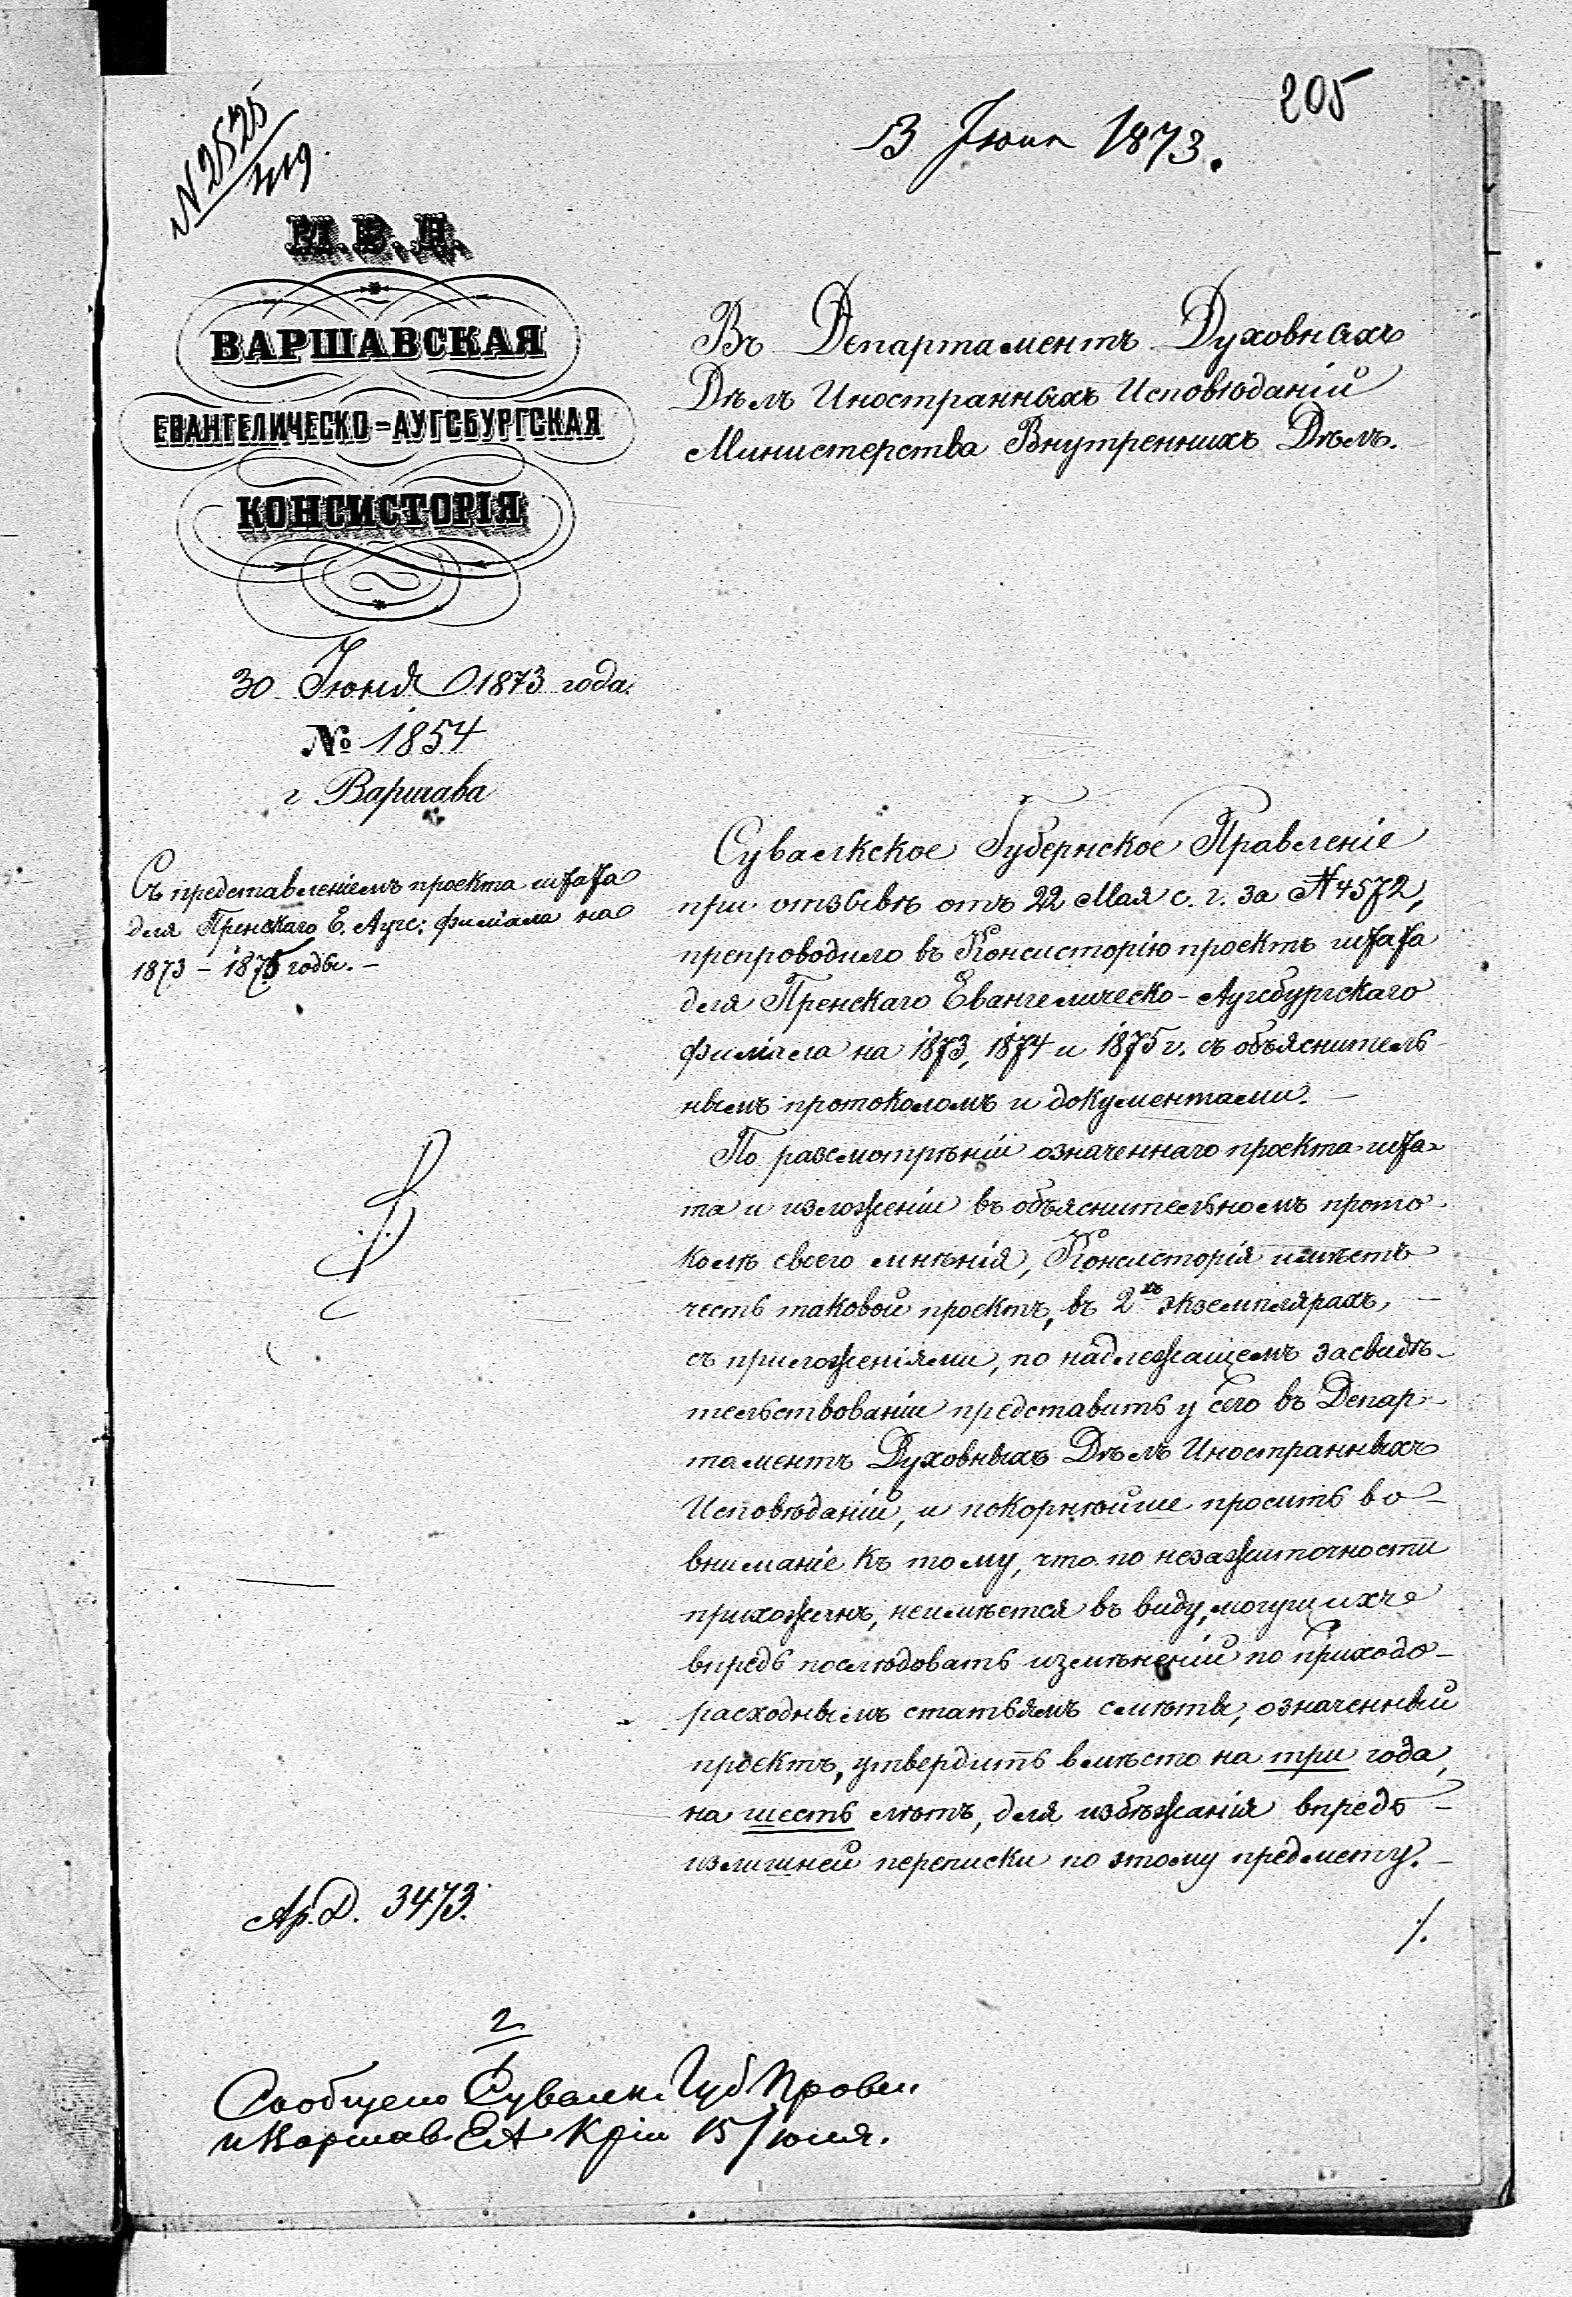 205
3 Іюля 1873.
N 2525
М. В. Д.
ВАРШАВСКАЯ
ЕВАНГЕЛИЧЕСКО=АУГСБУРГСКАЯ
КОНСИСТОРІЯ
30 Іюня 1873 года.
№ 1854
г Варшава
Съ представленіемъ проекта штата
для Пренскаго Е. Аугс: филіала на
1873 – 1875 годы. –
Въ Департаментъ Духовныхъ
Дѣлъ Иностранныхъ Исповѣданій
Министерства Внутреннихъ Дѣлъ.
Сувалкское Губернское Правленіе
при отзывѣ отъ 22 Мая с. г. за N 4572,
препроводило въ Консисторію проектъ штата
для Пренскаго Евангелическо-Аугсбургскаго
филіала на 1873, 1874 и 1875 г. съ объяснитель-
нымъ протоколомъ и документами. –
По разсмотрѣніи означеннаго проекта шта-
та и изложеніи въ объяснительномъ прото-
колѣ своего мнѣнія, Консисторія имѣетъ
честь таковой проектъ, въ 2хъ экземплярахъ, –
съ приложеніями, по надлежащемъ засвидѣ-
тельствованіи представить у сего въ Депар-
таментъ Духовныхъ Дѣлъ Иностранныхъ
Исповѣданій, и покорнѣйше проситъ во-
вниманіе къ тому, что по незажиточности
прихожанъ, неимѣется въ виду, могущихъ
впредь послѣдовать измѣненій по приходо-
расходнымъ статьямъ смѣты, означенный
проектъ, утвердить вмѣсто на три года,
на шесть лѣтъ, для избѣжанія впредь –
излишней переписки по этому предмету. –
./.
Ар. Д. 3473.
2
Сообщено Сувалк. Губ Правл.
и Варшав. ЕА Кріи 15/ юля.